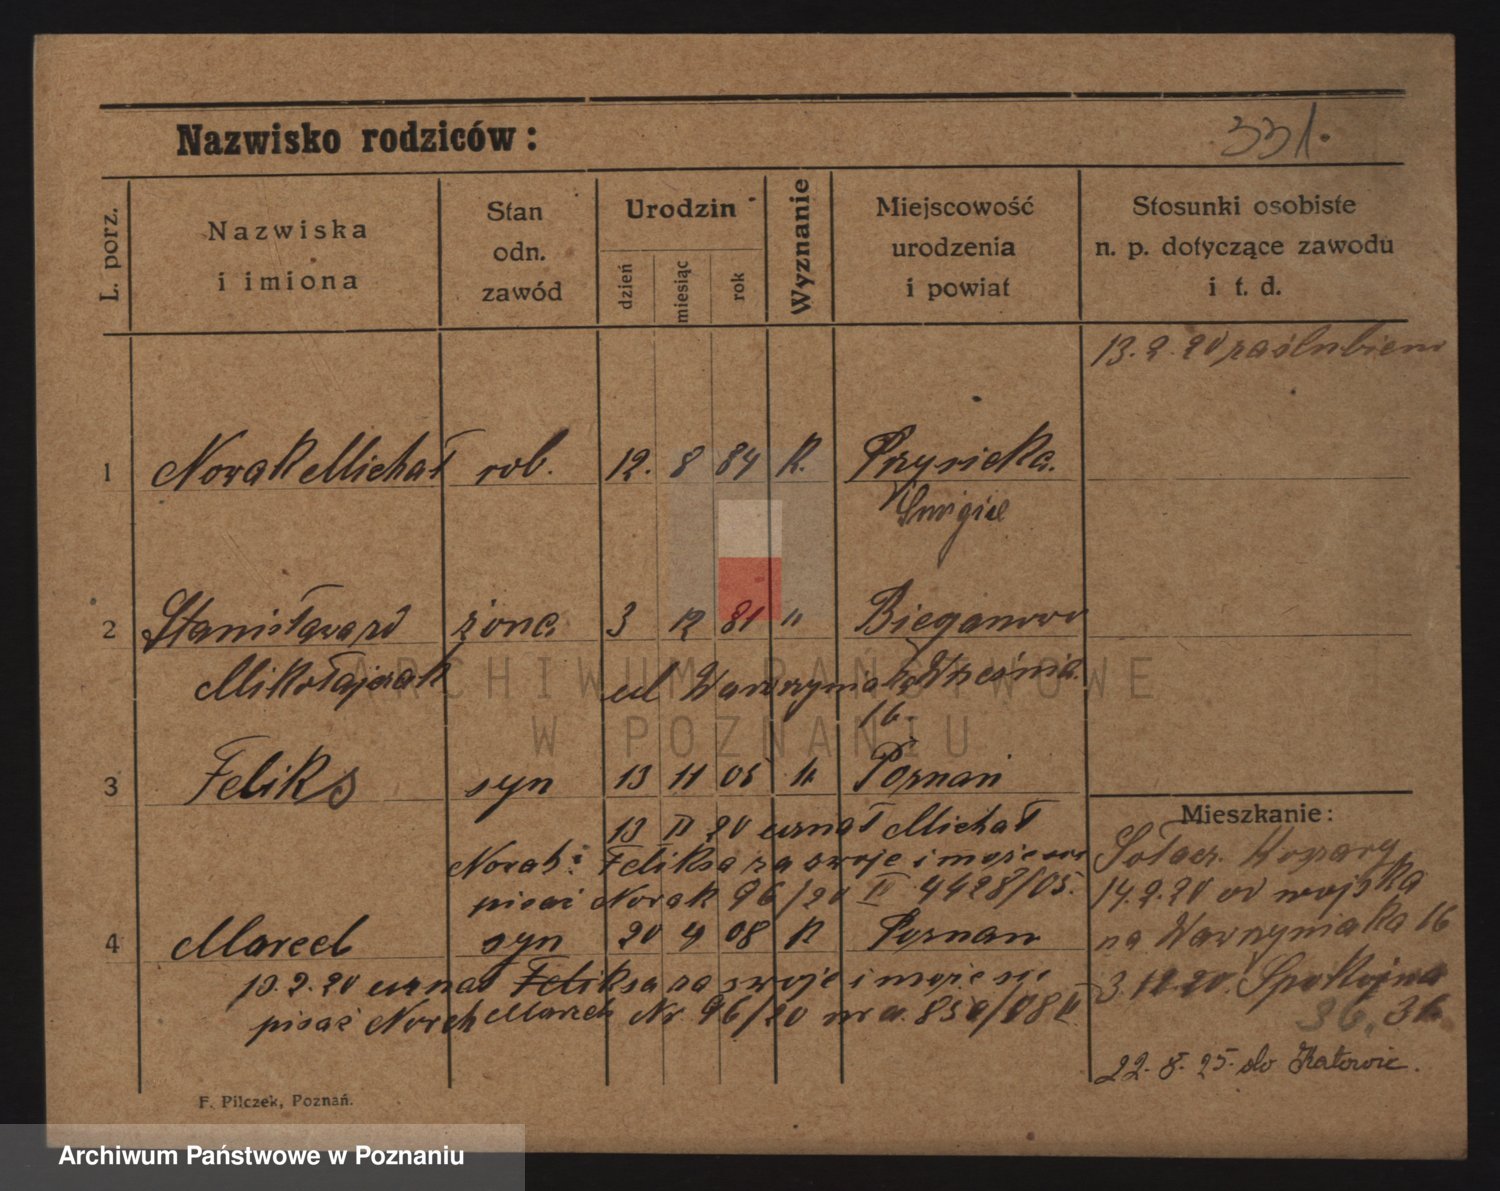 Nazwisko rodziców:
331.
L. porz.
Nazwiska
i imiona
Stan
odn.
zawód
Urodzin
dzień
miesiąc
rok
Wyznanie
Miejscowość
urodzenia
i powiat
Stosunki osobiste
n. p. dotyczące zawodu
i t. d.
13. 2. 20 zaślubieni
1 Nowak Michał rob. 12. 8 84 K. Przysieka
Śmigiel
2 Stanisława zd żona 3 12 81 " Bieganowo
Mikołajczak Września
ul Wawrzyniaka
16.
3 Feliks syn 13 11 05 " Poznań
13 II 20 uznał Michał
Nowak: Feliksa za swoje i może się
pisać Nowak 96/20 II 4428/05.
4 Marcel syn 20 4 08 K Poznań
13. 2. 20 uznał Feliksa za swoje i może się
pisać Nowak Marcel Nr. 96/20
Mieszkanie:
Sołacz.
14. 2. 20 od wojska
na Wawrzyniaka 16
3. 12. 20. Spokojna
36. 36
22. 8. 25. do Katowic.
F. Pilczek, Poznań.
ARCHIWUM PAŃSTWOWE
W POZNANIU
Archiwum Państwowe w Poznaniu